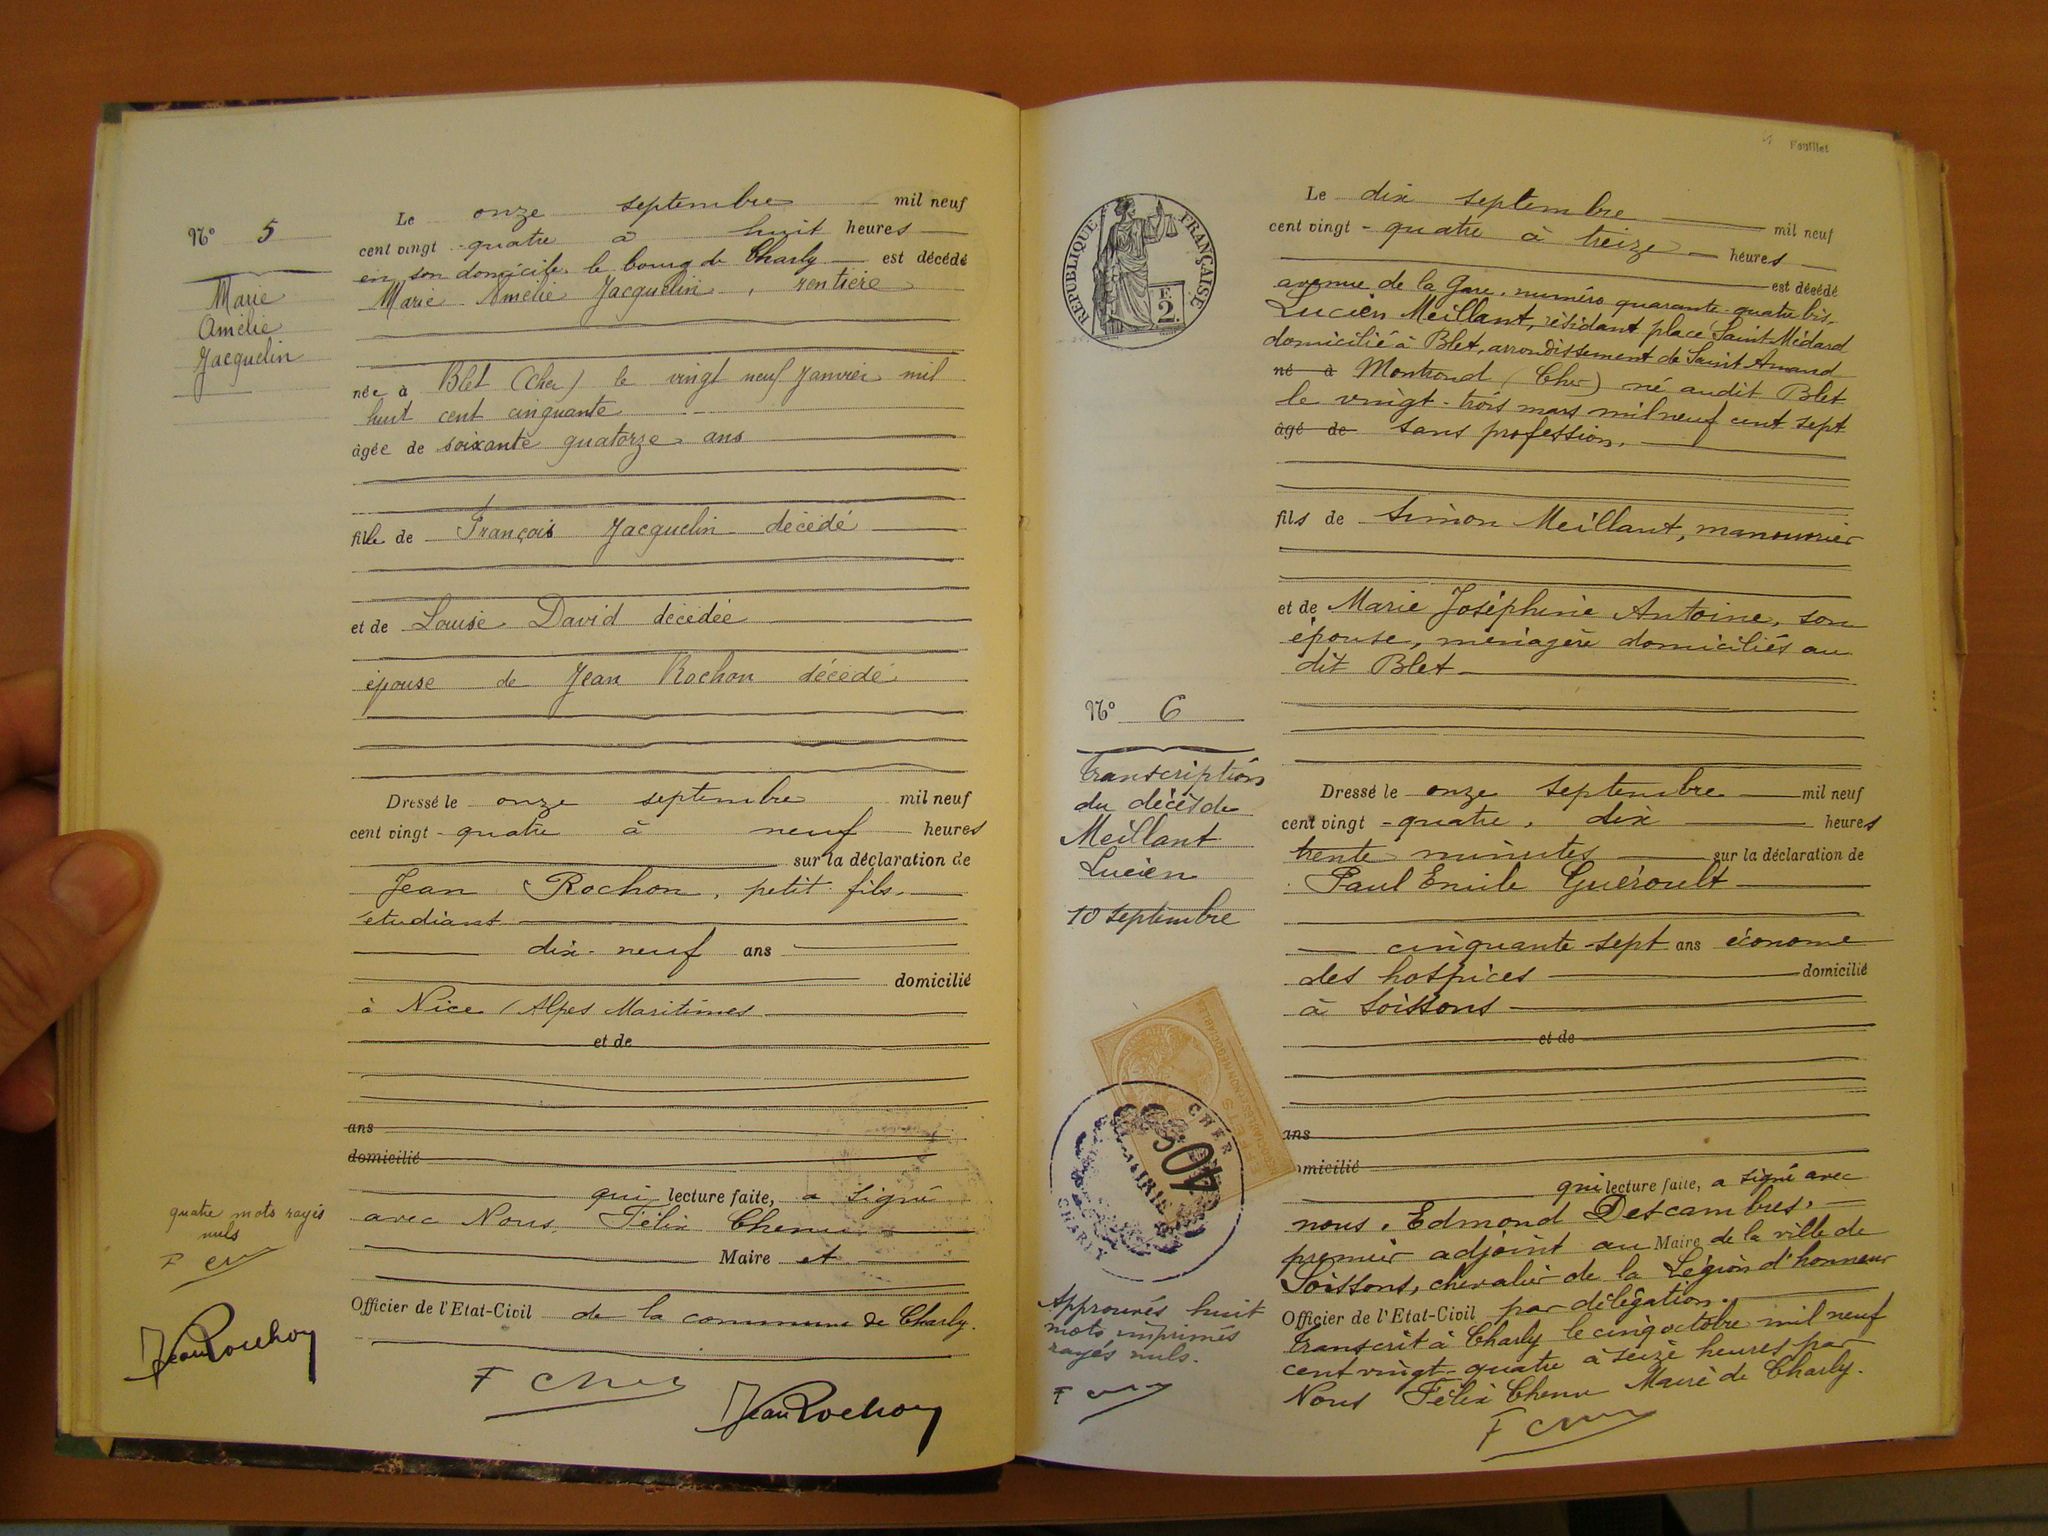 N° 5
Marie
Amélie
Jacquelin
Le onze septembre mil neuf
cent vingt-quatre à huit heures
en son domicile le bourg de Charly est décédé
Marie Amélie Jacquelin, rentière
née à Blet (Cher) le vingt neuf Janvier mil
huit cent cinquante
âgée de soixante quatorze ans
fille de François Jacquelin décédé
et de Louise David décédée
épouse de Jean Rochon décédé
Dressé le onze septembre mil neuf
cent vingt-quatre à neuf heures
sur la déclaration de
Jean Rochon, petit fils,
etudiant
dix-neuf ans
domicilié
à Nice (Alpes Maritimes
et de
ans
domicilié
qui lecture faite, a signé
avec Nous Félix Chenu
Maire et
Officier de l'Etat-Civil de la commune de Charly.
quatre mots rayés
nuls
Jean Rochon
Jean Rochon
Feuillet
REPUBLIQUE FRANÇAISE
F.
2.
Le dix septembre mil neuf
cent vingt-quatre à treize heures
est décédé
avenue de la Gare, numéro quarante-quatre bis,
Lucien Meillant, résidant place Saint Médard
domicilié à Blet, arrondissement de Saint Amand
né à Montrond (Cher) né audit Blet
le vingt-trois mars mil neuf cent sept
âgé de sans profession.
fils de Simon Meillant, manouvrier
et de Marie Joséphine Antoine, son
épouse, ménagère domiciliés au
dit Blet
N° 6
Transcription
du décès de
Meillant
Lucien
10 septembre
Dressé le onze septembre mil neuf
cent vingt-quatre, dix heures
trente minutes sur la déclaration de
Paul Emile Guéroult
cinquante-sept ans économe
des hospices domicilié
à Soissons
et de
ans
omicilié
qui lecture faite, a signé avec
nous, Edmond Descambres,
premier adjoint au Maire de la ville de
Soissons, chevalier de la Légion d'honneur
Officier de l'Etat-Civil par délégation.
Transcrit à Charly le cinq octobre mil neuf
cent vingt-quatre à seize heures par
Nous Félix Chenu Maire de Charly.
MAIRIE
CHARLY
CHER
Approuvés huit
mots imprimés
rayés nuls.